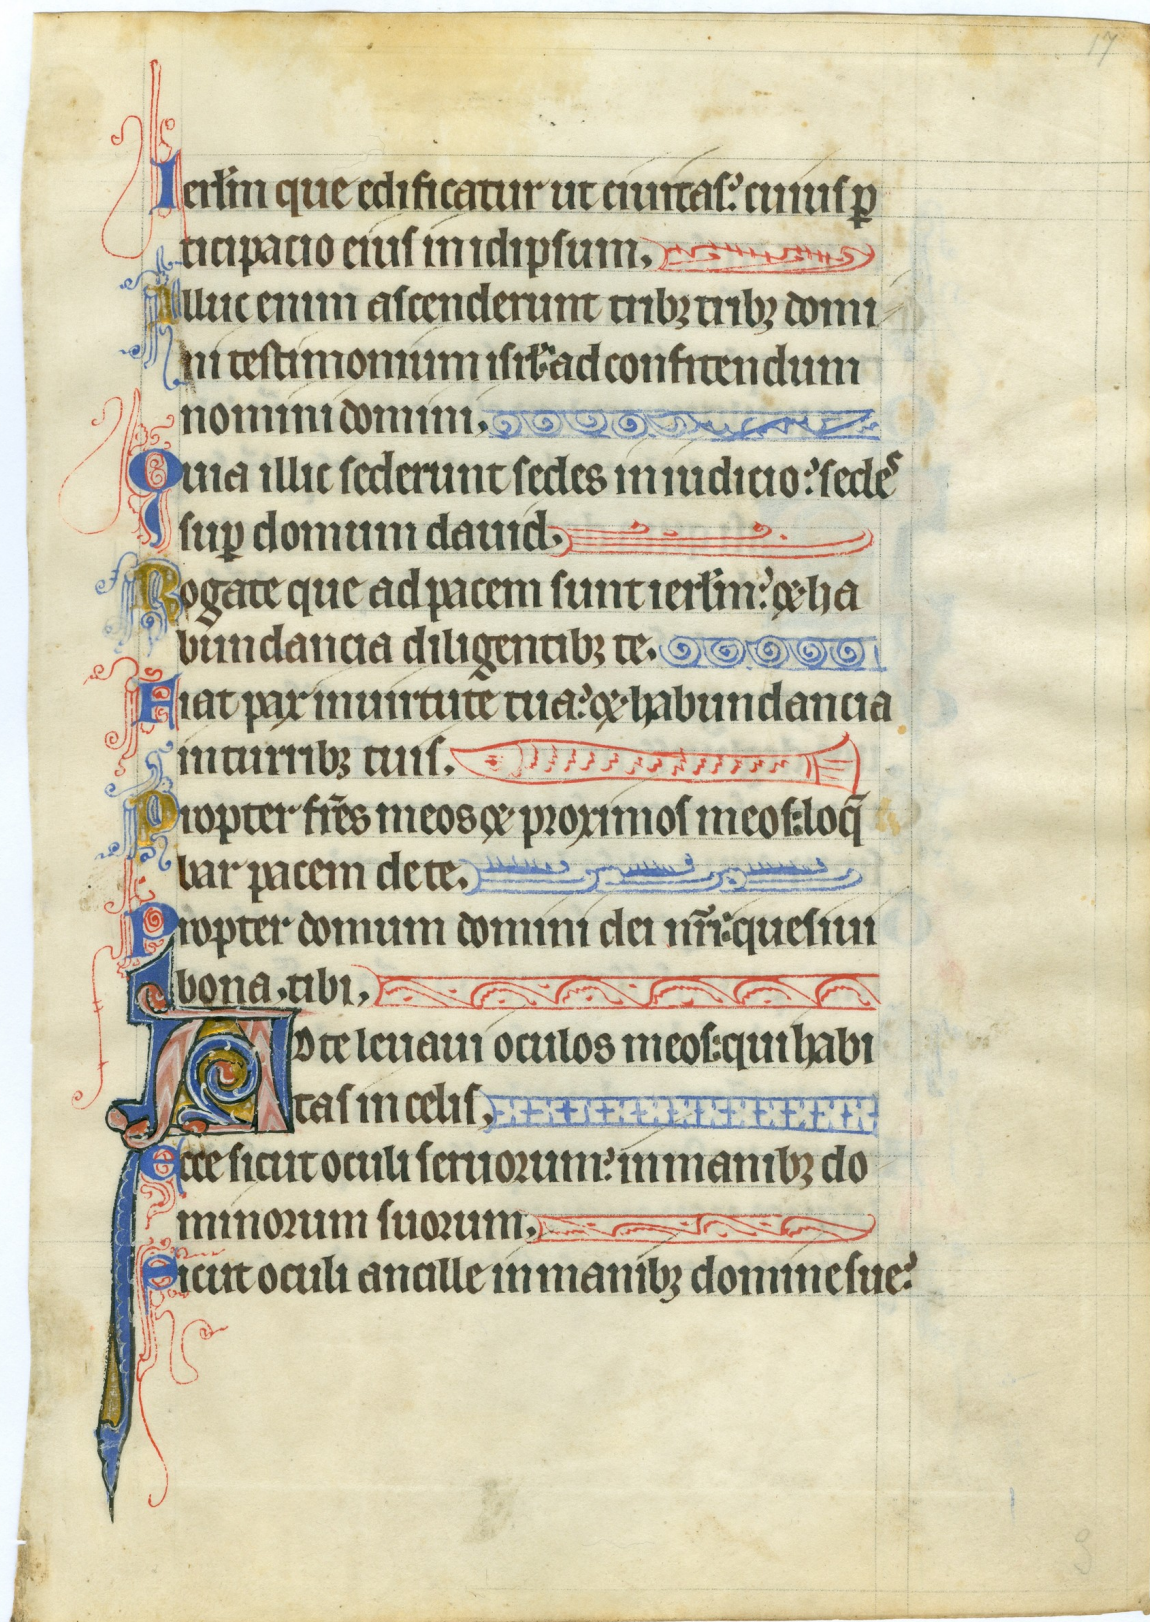 17
Ierłm que edificatur ut ciuitas: cuius ꝑ
ticipacio eius in idipsum.
Illuc enim ascenderunt tribꝫ tribꝫ domi
ni testimonium isrł: ad confitendum
nomini domini.
Quia illic sederunt sedes in iudicio: sedes
suꝑ domum dauid.
Rogate que ad pacem sunt ierłm: ⁊ ha
bundancia diligentibꝫ te.
Fiat pax in uirtute tua: ⁊ habundancia
in turribꝫ tuis.
Propter fr̄es meos ⁊ proximos meos: loq̄
bar pacem de te.
Propter domum domini dei nr̄i: quesiui
bona tibi.
Ad te leuaui oculos meos: qui habi
tas in celis.
Ecce sicut oculi seruorum: in manibꝫ do
minorum suorum.
Sicut oculi ancille in manibꝫ domine sue: